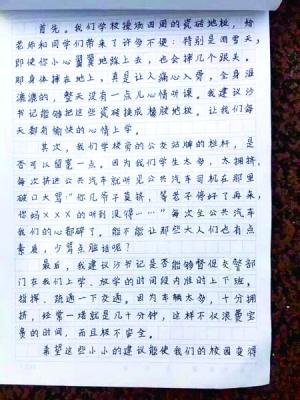 首先。我们学校操场四周的瓷砖地板，给
老师和同学们带来了许多不便：特别是雨雪天，
即使你小心翼翼地踏上去，也会摔几个跟头。
即身体摔在地上，真是让人痛心入骨，全身湿
漉漉的，整天没有一点儿心情听课。我建议沙
书记能够把这些瓷砖换成橡胶地板。让我们每
天都有愉快的心情上学。
其次，我们学校旁的公交站牌的栏杆，是
否可以留宽一点。因为我们学生太多，太拥挤，
每次挤进公共汽车就听见公共汽车司机在那里
破口大骂“你几爷子莫挤，等老子停好了再来，
你妈×××的听到没得……”每次坐公共汽车
我们的心都碎了。能不能让那些大人们也有点
素质，少骂点脏话呢？
最后，我建议沙书记是否能够督促交警部
门在我们上学、放学的时间段内准时上下班，
指挥、疏通一下交通。因为车辆太多，十分拥
挤，经常一堵就是几十分钟，这样不仅浪费宝
贵的时间，而且极不安全。
希望这些小小的建议能使我们的校园变得